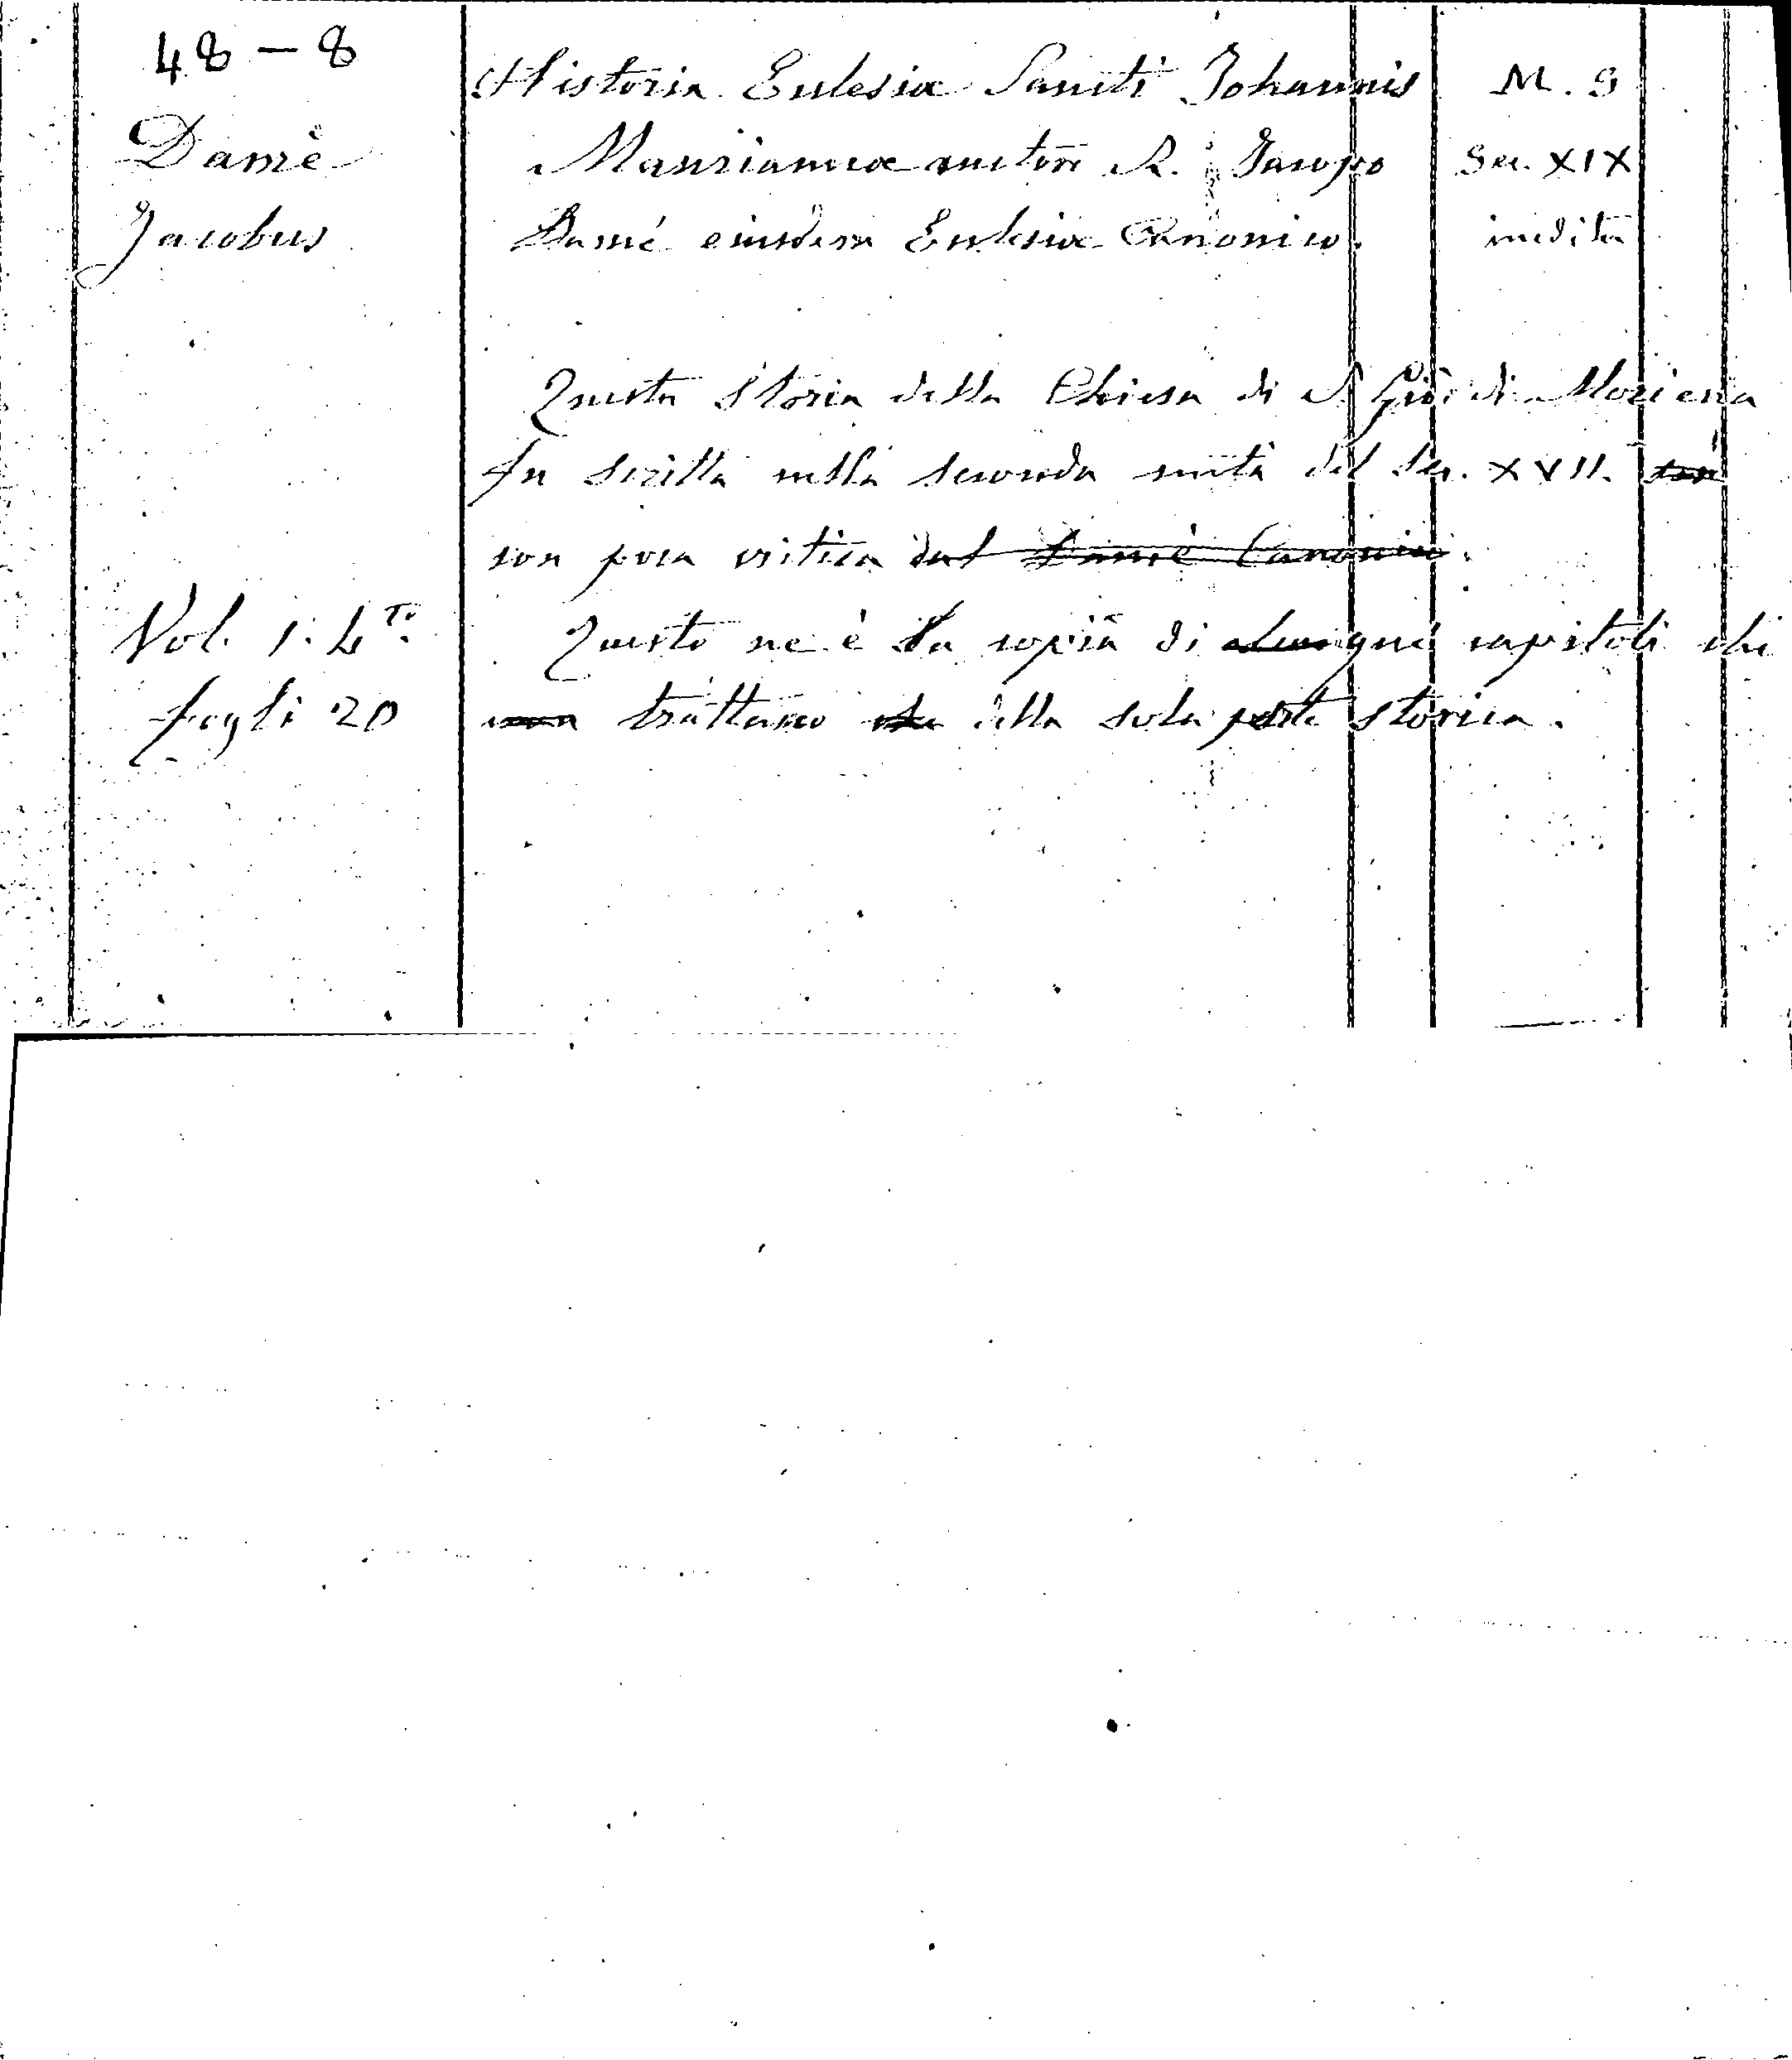 48 – 8
Damè
Jacobus
Vol. 1: 4to
fogli 20
Historia Ecclesiæ Sancti Johannis
Maurianneæ auctore R. Jacopo
Damé eiusdem Ecclesiæ Canonico.
Questa Storia della Chiesa di S Gio: di Moriena
fu scritta nella seconda metà del Sec. XVII.
con poca critica dal Damè Canonico.
Questo ne è la copia di que' capitoli che
trattano della sola parte storica.
M. S
Sec. XIX
inedita